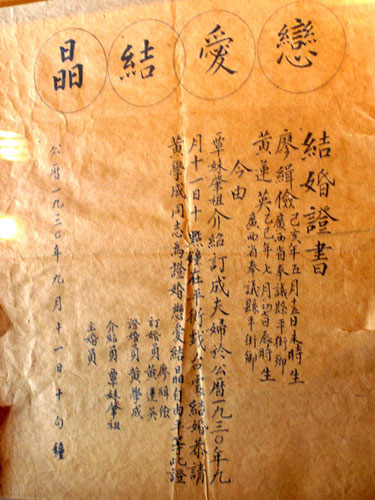 戀愛結晶
結婚證書
廖緝儉 己亥年五月十五日未時生
廣西省奉議縣平街鄉
黃蓮英 己巳年七月初十日辰時生
廣西省奉議縣平街鄉
今由
覃妹肇祖介紹訂成夫婦於公曆一九三〇年九
月十一日十點鐘在平街戲台處結婚恭請
黃學成同志為證婚戀愛結晶自由平等此證
訂婚員 廖緝儉
黃蓮英
證婚員 黃學成
介紹員 覃妹肇祖
主婚員
公曆一九三〇年九月十一日十句鐘